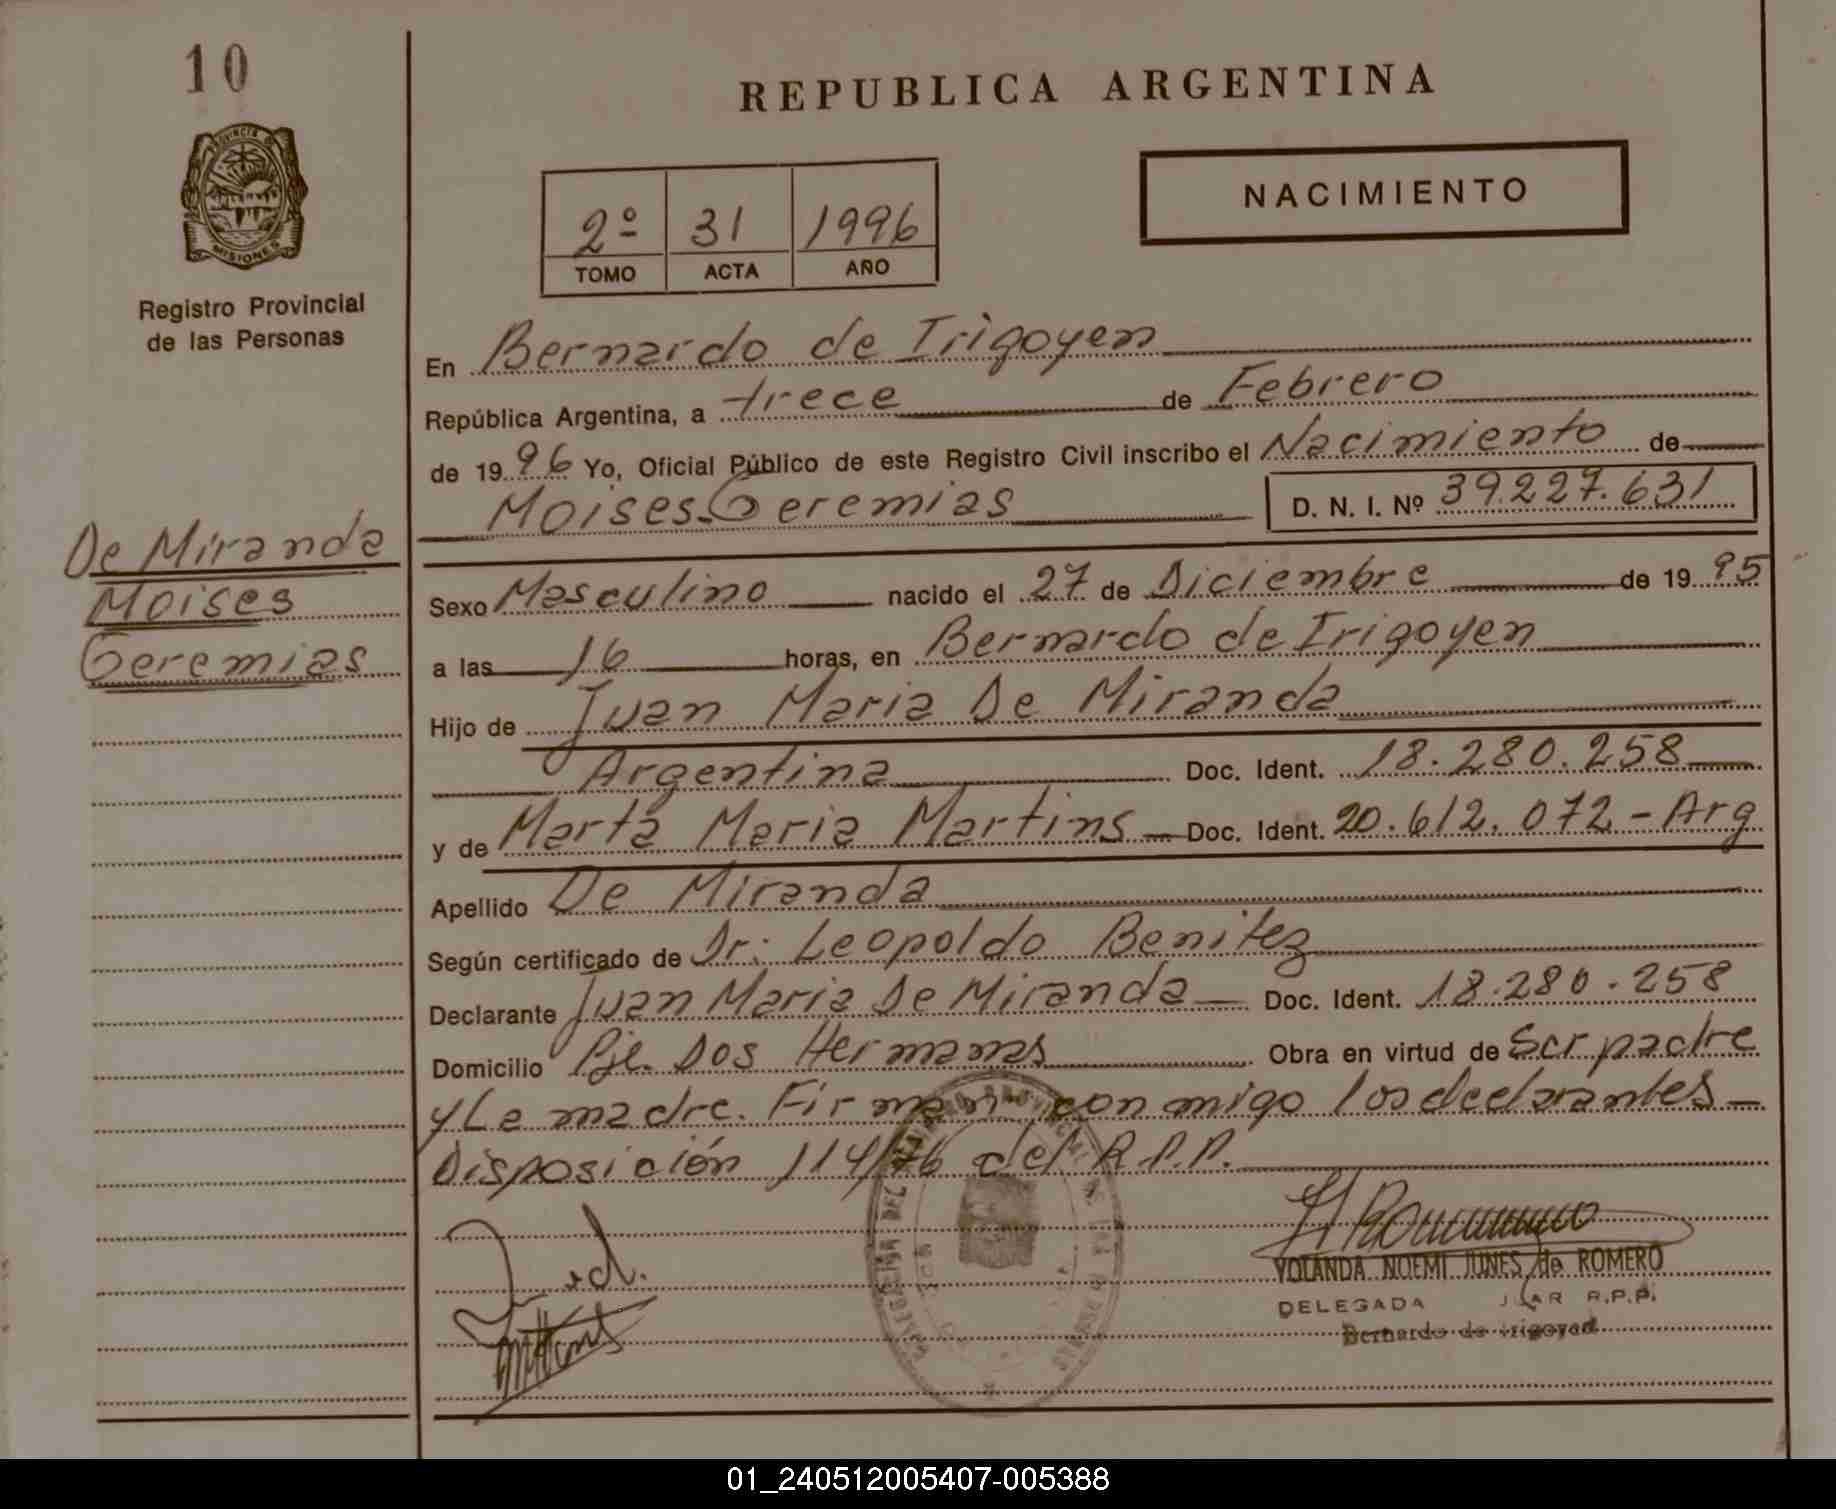 10
REPUBLICA ARGENTINA
PROVINCIA DE
MISIONES
NACIMIENTO
2º 31 1996
TOMO ACTA AÑO
Registro Provincial
de las Personas
En Bernardo de Irigoyen
República Argentina, a trece de Febrero
de 1996 Yo, Oficial Público de este Registro Civil inscribo el Nacimiento de
Moises Geremias D. N. I. Nº 39.227.631
De Miranda
Moises
Geremias
Sexo Masculino nacido el 27 de Diciembre de 1995
a las 16 horas, en Bernardo de Irigoyen
Hijo de Juan Maria De Miranda
Argentina Doc. Ident. 18.280.258
y de Marta Maria Martins Doc. Ident. 20.612.072 - Arg
Apellido De Miranda
Según certificado de Dr: Leopoldo Benitez
Declarante Juan Maria De Miranda Doc. Ident. 18.280.258
Domicilio Pje. Dos Hermanas Obra en virtud de Ser padre
y La madre. Firman conmigo los declarantes
Disposición 114/76 del R.P.P.
YOLANDA NOEMI JUNES de ROMERO
DELEGADA R.P.P.
Bernardo de Irigoyen
01_240512005407-005388